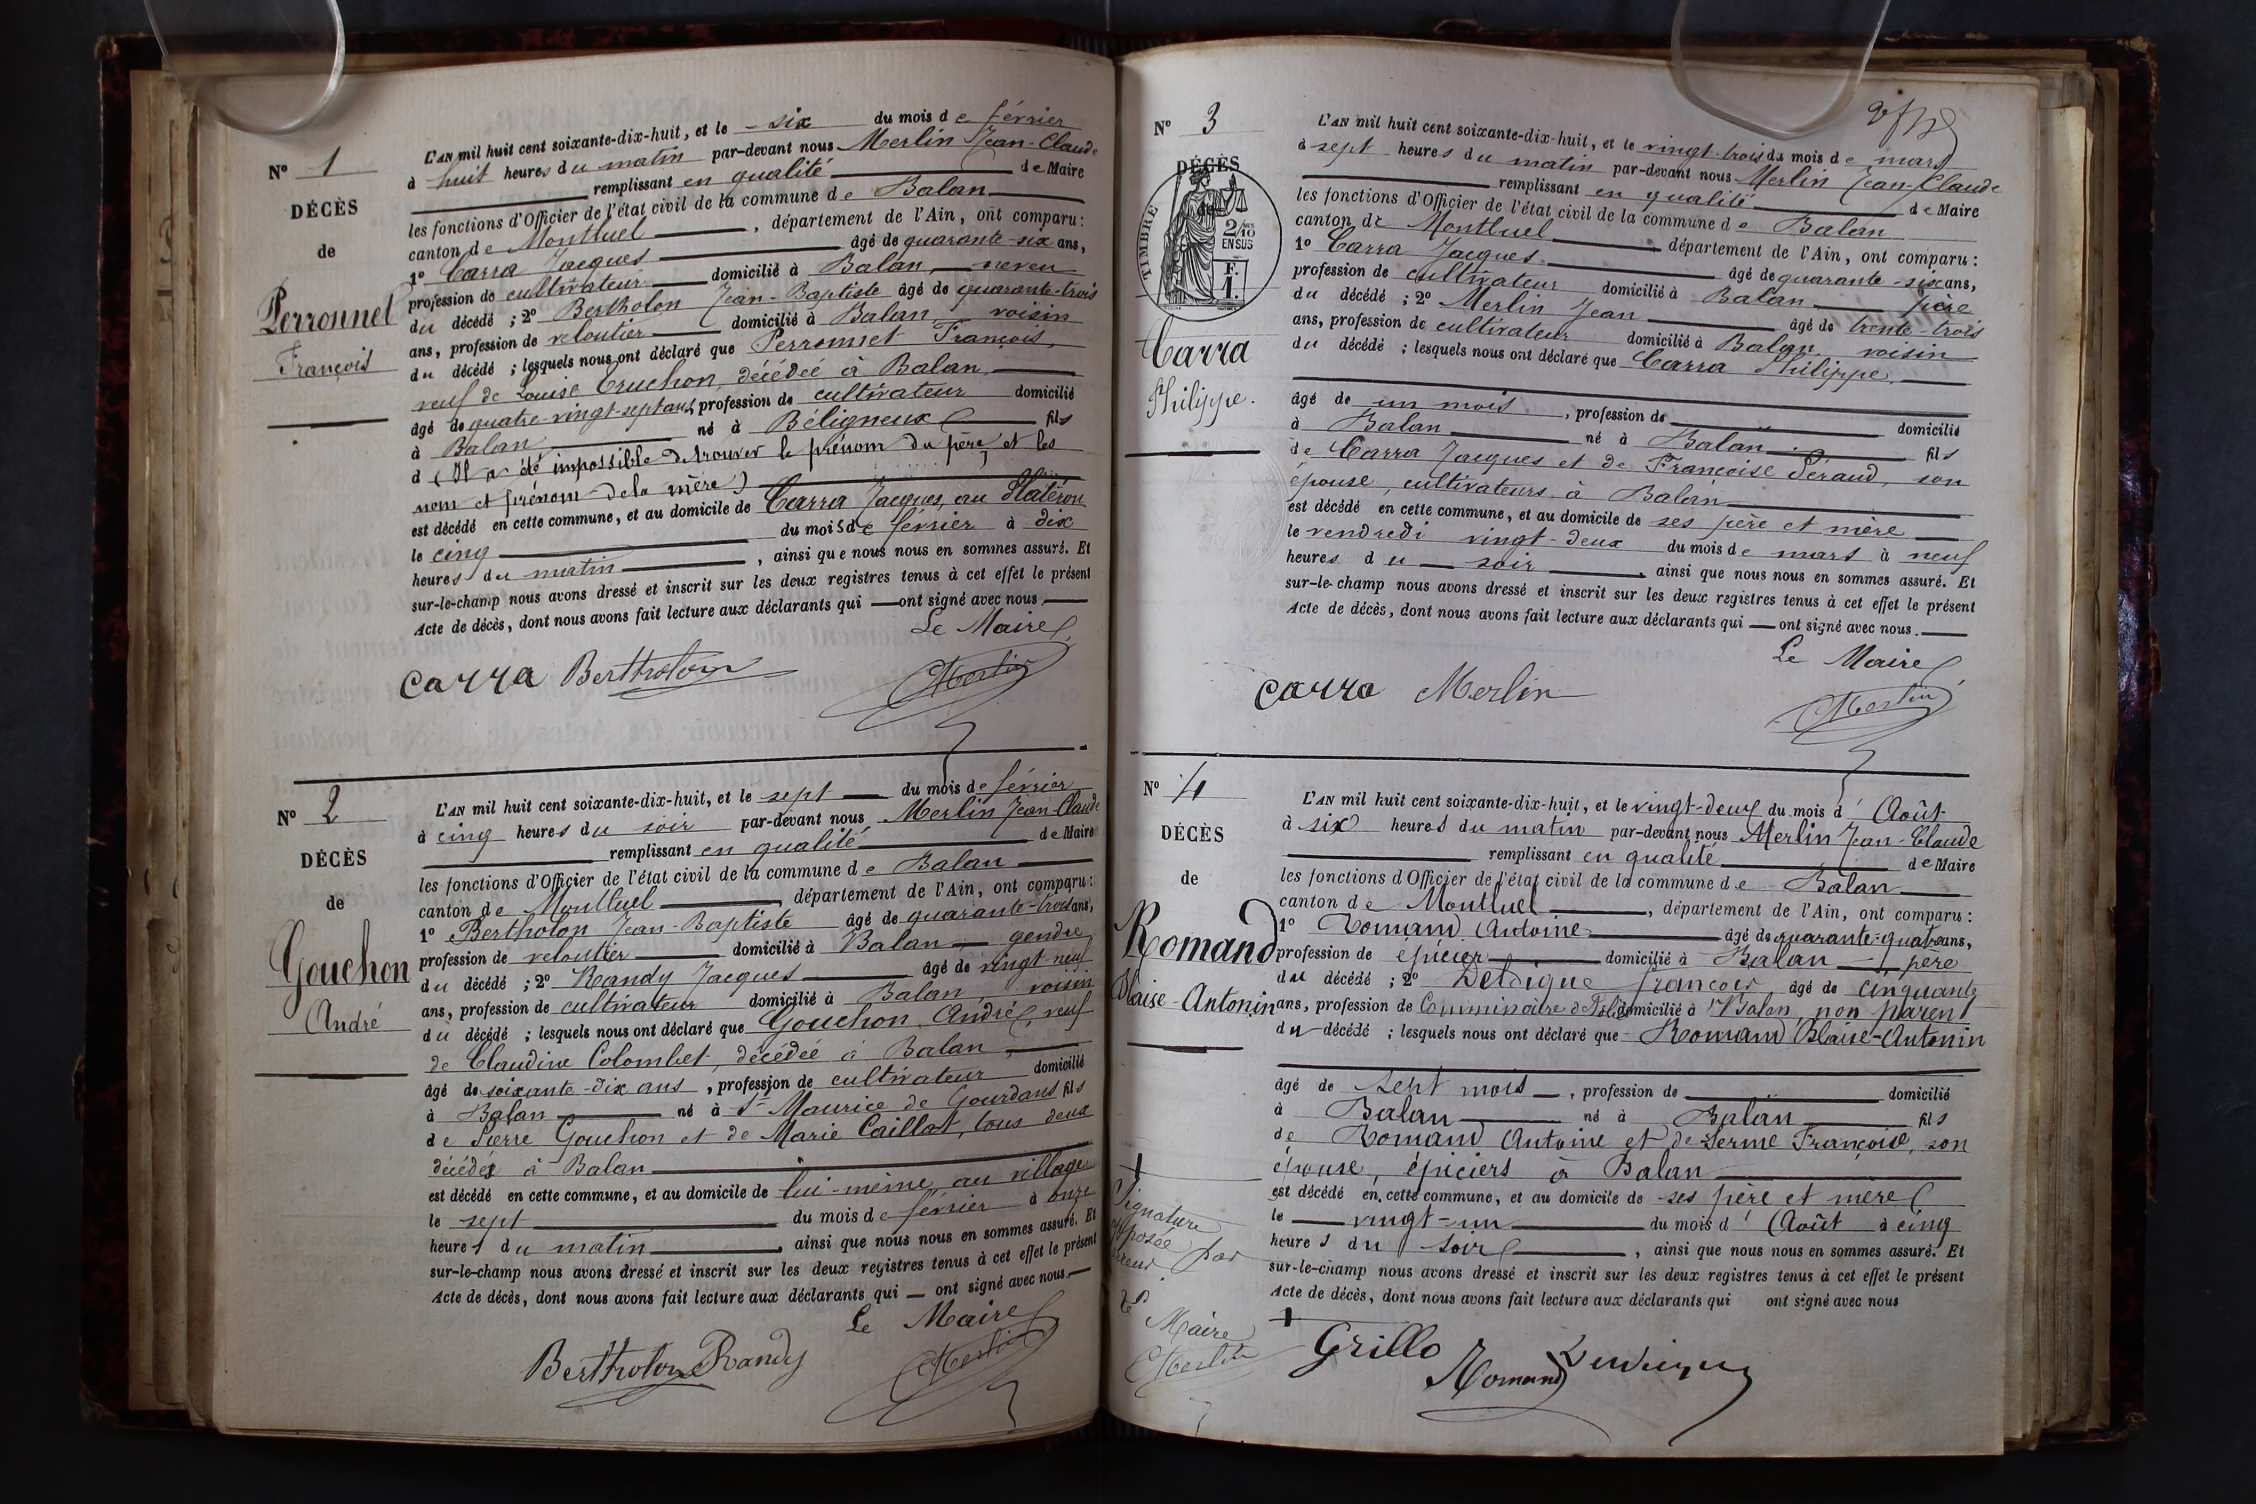 N° 1
DÉCÈS
de
Perronnet
François
L'AN mil huit cent soixante-dix-huit, et le six du mois de février
à huit heures du matin par-devant nous Merlin Jean-Claude
remplissant en qualité de Maire
les fonctions d'Officier de l'état civil de la commune de Balan
canton de Montluel, département de l'Ain, ont comparu:
1° Carra Jacques âgé de quarante-six ans,
profession de cultivateur domicilié à Balan, neveu
du décédé; 2° Bertholon Jean-Baptiste âgé de quarante-trois
ans, profession de veloutier domicilié à Balan, voisin
du décédé; lesquels nous ont déclaré que Perronnet François,
veuf de Louise Cruchon, décédée à Balan
âgé de quatre-vingt-sept ans, profession de cultivateur domicilié
à Balan né à Béligneux fils
d (Il a été impossible de trouver le prénom du père, et les
nom et prénom de la mère)
est décédé en cette commune, et au domicile de Carra Jacques, au
le cinq du mois de février à dix
heures du matin, ainsi que nous nous en sommes assuré. Et
sur-le-champ nous avons dressé et inscrit sur les deux registres tenus à cet effet le présent
Acte de décès, dont nous avons fait lecture aux déclarants qui ont signé avec nous
Le Maire
carra Bertholon Merlin
N° 2
DÉCÈS
de
Gouchon
André
L'AN mil huit cent soixante-dix-huit, et le sept du mois de février
à cinq heures du soir par-devant nous Merlin Jean-Claude
remplissant en qualité de Maire
les fonctions d'Officier de l'état civil de la commune de Balan
canton de Montluel, département de l'Ain, ont comparu:
1° Bertholon Jean-Baptiste âgé de quarante-trois ans,
profession de veloutier domicilié à Balan gendre
du décédé; 2° Randy Jacques âgé de vingt neuf
ans, profession de cultivateur domicilié à Balan, voisin
du décédé; lesquels nous ont déclaré que Gouchon André, veuf
de Claudine Colombet, décédée à Balan,
âgé de soixante-dix ans, profession de cultivateur domicilié
à Balan né à St Maurice de Gourdans fils
de Pierre Gouchon et de Marie Caillat, tous deux
décédés à Balan
est décédé en cette commune, et au domicile de lui-même, au village
le sept du mois de février à onze
heures du matin, ainsi que nous nous en sommes assuré. Et
sur-le-champ nous avons dressé et inscrit sur les deux registres tenus à cet effet le présent
Acte de décès, dont nous avons fait lecture aux déclarants qui ont signé avec nous.
Le Maire
Bertholon Randy Merlin
N° 3
DÉCÈS
de
TIMBRE
2/10
EN SUS
F.
1.
Carra
Philippe.
L'AN mil huit cent soixante-dix-huit, et le vingt-trois du mois de mars
à sept heures du matin par-devant nous Merlin Jean-Claude
remplissant en qualité de Maire
les fonctions d'Officier de l'état civil de la commune de Balan
canton de Montluel département de l'Ain, ont comparu:
1° Carra Jacques âgé de quarante-six ans,
profession de cultivateur domicilié à Balan père
du décédé; 2° Merlin Jean âgé de trente-trois
ans, profession de cultivateur domicilié à Balan, voisin
du décédé; lesquels nous ont déclaré que Carra Philippe,
âgé de un mois, profession de domicilié
à Balan né à Balan fils
de Carra Jacques et de Françoise Péraud, son
épouse, cultivateurs à Balan
est décédé en cette commune, et au domicile de ses père et mère
le vendredi vingt-deux du mois de mars à neuf
heures du soir, ainsi que nous nous en sommes assuré. Et
sur-le-champ nous avons dressé et inscrit sur les deux registres tenus à cet effet le présent
Acte de décès, dont nous avons fait lecture aux déclarants qui ont signé avec nous.
Le Maire
carra Merlin Merlin
N° 4
DÉCÈS
de
Romand
Blaise-Antonin
L'AN mil huit cent soixante-dix-huit, et le vingt-deux du mois d'Août
à six heures du matin par-devant nous Merlin Jean-Claude
remplissant en qualité de Maire
les fonctions d'Officier de l'état civil de la commune de Balan
canton de Montluel, département de l'Ain, ont comparu:
1° Romand Antoine âgé de quarante-quatre ans,
profession de épicier domicilié à Balan père
du décédé; 2° François, âgé de cinquante
ans, profession de Commissaire de Police domicilié à Balan, non parent
du décédé; lesquels nous ont déclaré que Romand Blaise-Antonin
âgé de sept mois, profession de domicilié
à Balan né à Balan fils
de Romand Antoine et de Françoise, son
épouse, épiciers à Balan
est décédé en cette commune, et au domicile de ses père et mère
le vingt-un du mois d'Août à cinq
heures du soir, ainsi que nous nous en sommes assuré. Et
sur-le-champ nous avons dressé et inscrit sur les deux registres tenus à cet effet le présent
Acte de décès, dont nous avons fait lecture aux déclarants qui ont signé avec nous
Signature
apposée par
erreur.
Le Maire
Merlin
Grillo
Romand